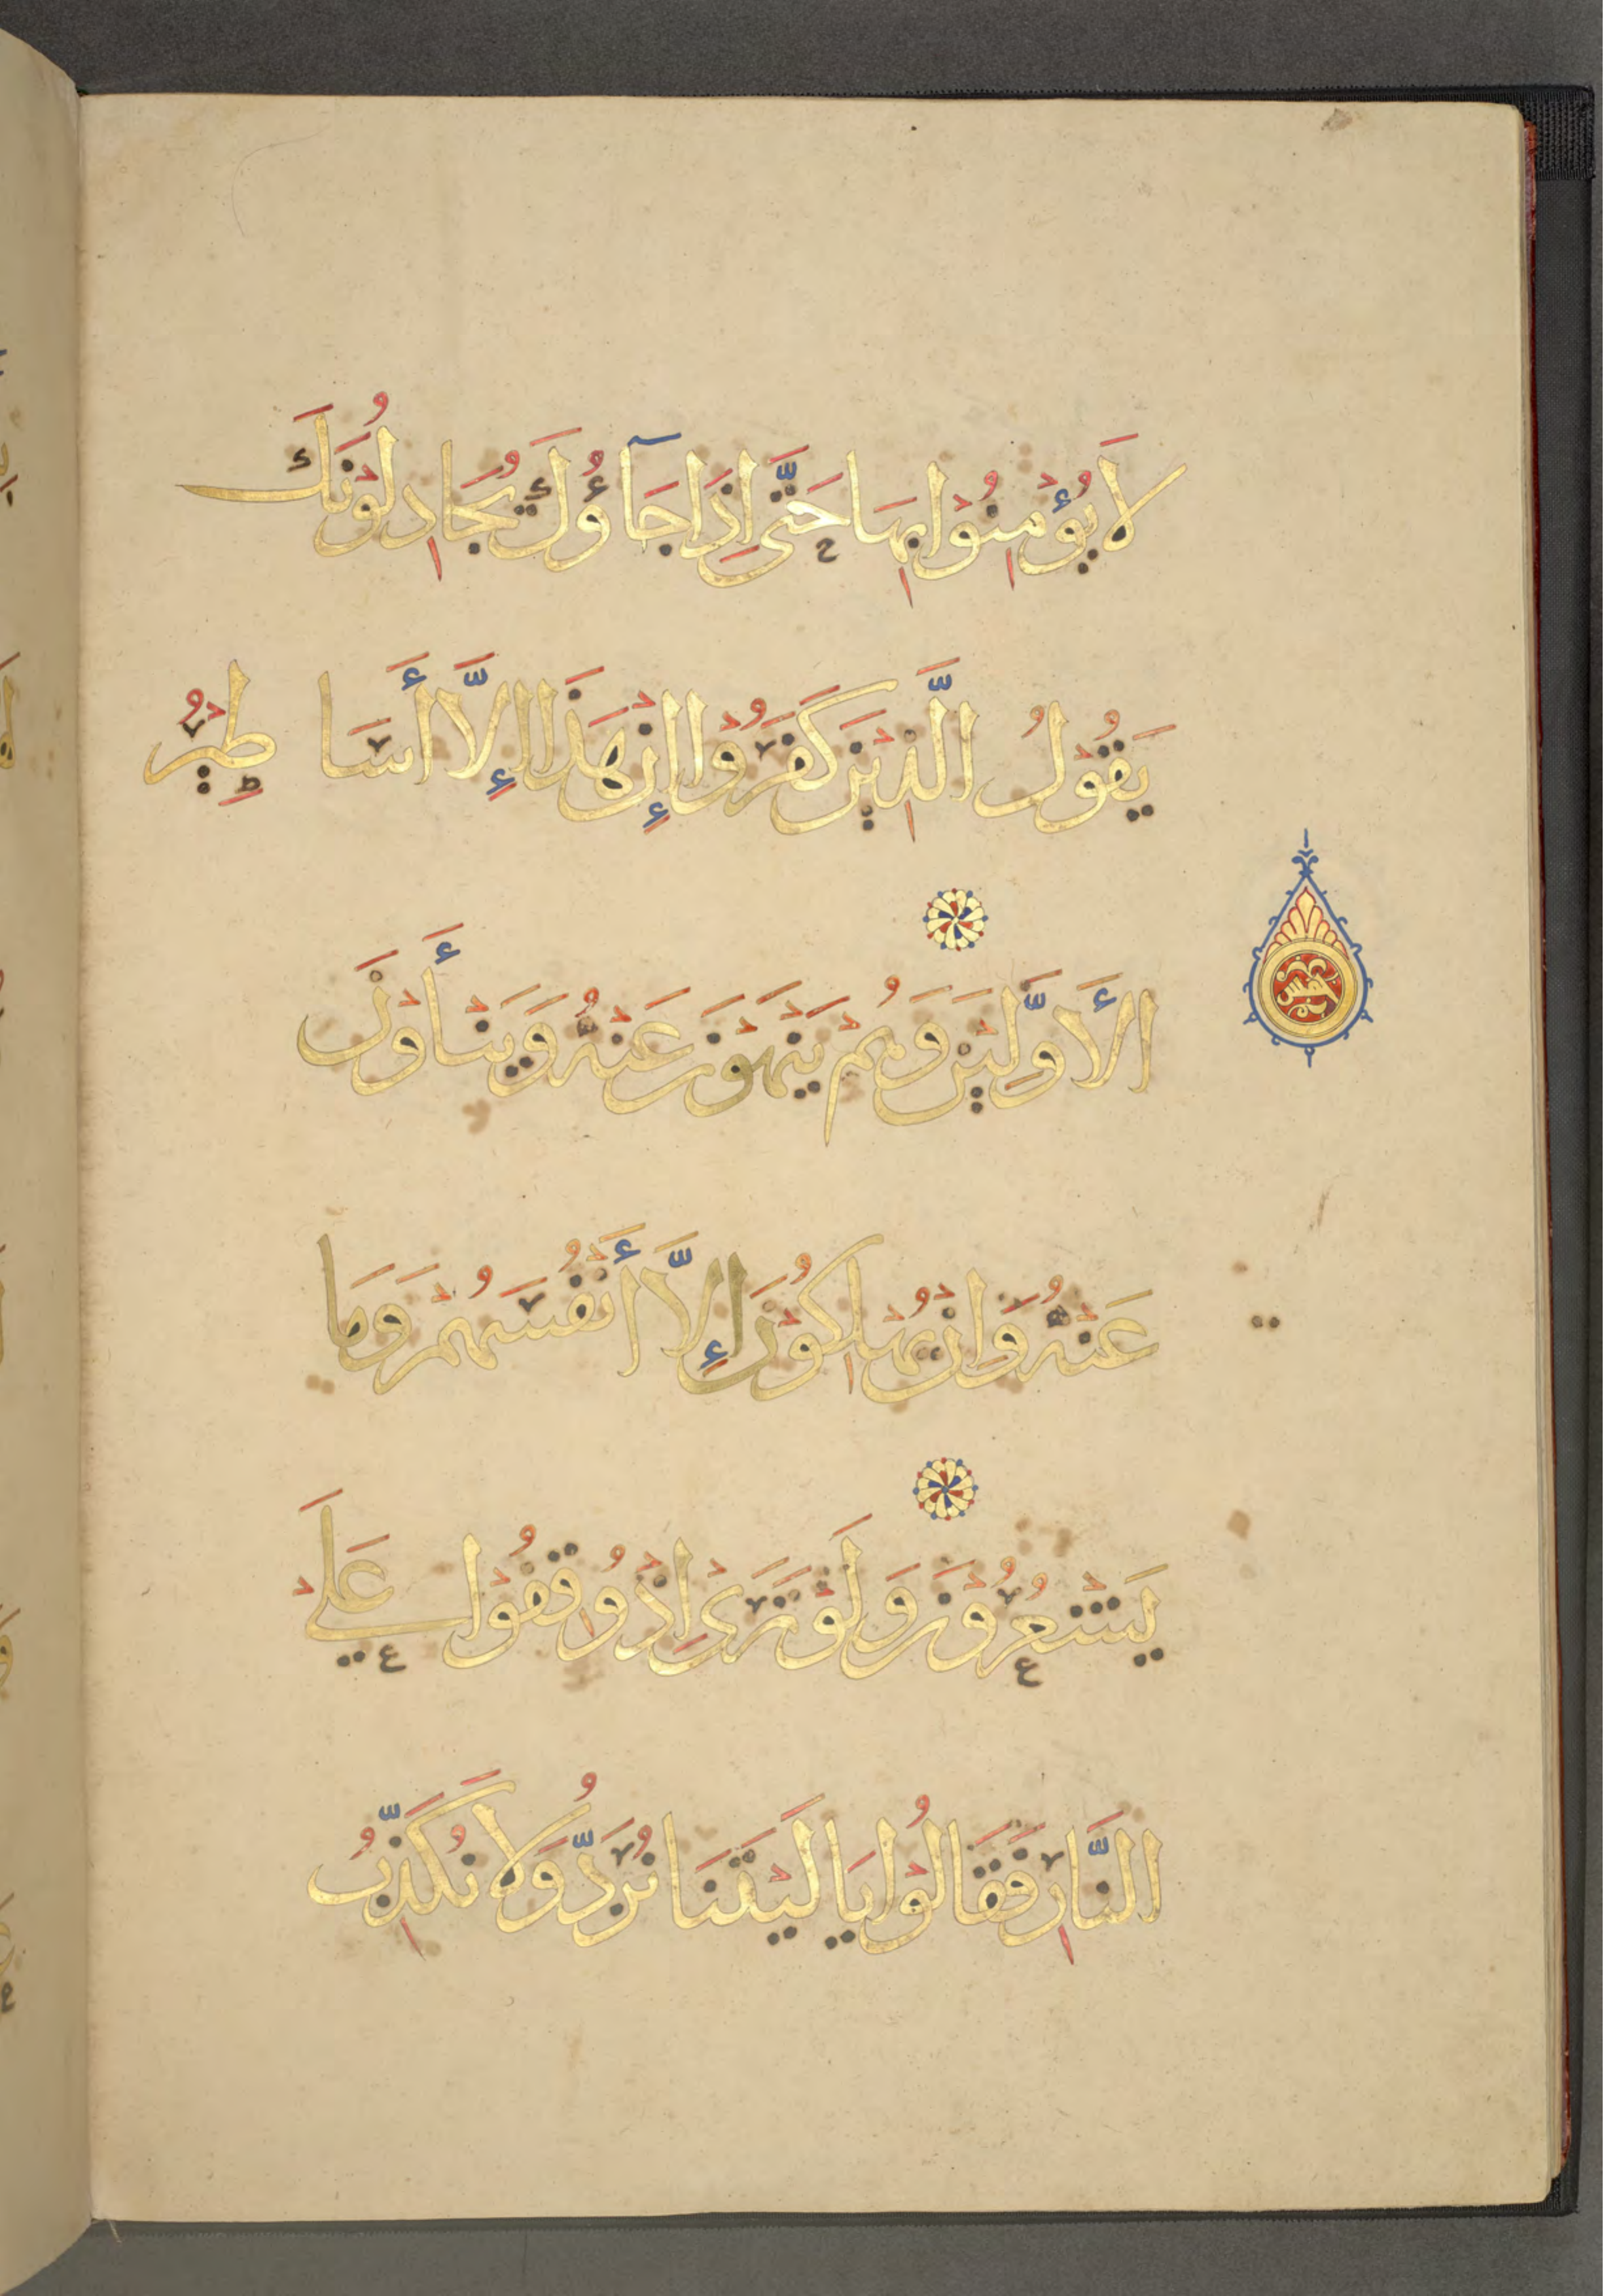 لَا يُؤْمِنُوْا بِهَا حَتَّى اِذَا جَآءُوْكَ يُجَادِلُوْنَكَ
يَقُوْلُ الَّذِيْنَ كَفَرُوْا إِنْ هَذَا إِلَّا أَسَاطِيْرُ
الأَوَّلِيْنَ وَهُمْ يَنْهَوْنَ عَنْهُ وَيَنْأَوْنَ
خمس
عَنْهُ وَاِنْ يُهْلِكُوْنَ إِلَّا أَنْفُسَهُمْ وَمَا
يَشْعُرُوْنَ وَلَوْ تَرَىٰ اِذْ وُقِفُوْا عَلَى
النَّارِ فَقَالُوْا يَا لَيْتَنَا نُرَدُّ وَلَا نُكَذِّبُ